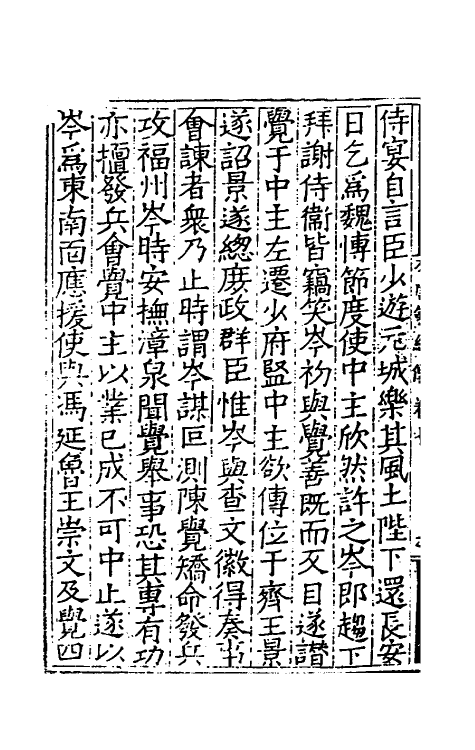 侍宴自言臣少遊元城樂其風土陛下還長安
日乞爲魏博節度使中主欣然許之岑即趨下
拜謝侍衞皆竊笑岑初與覺善既而反目遂譖
覺于中主左遷少府監中主欲傳位于齊王景
遂詔景遂總庻政群臣惟岑與查文徽得奏事
會諫者衆乃止時謂岑謀叵測陳覺矯命發兵
攻福州岑時安撫漳泉聞覺舉事恐其專有功
亦擅發兵會覺中主以業已成不可中止遂以
岑爲東南面應援使與馮延魯王崇文及覺四